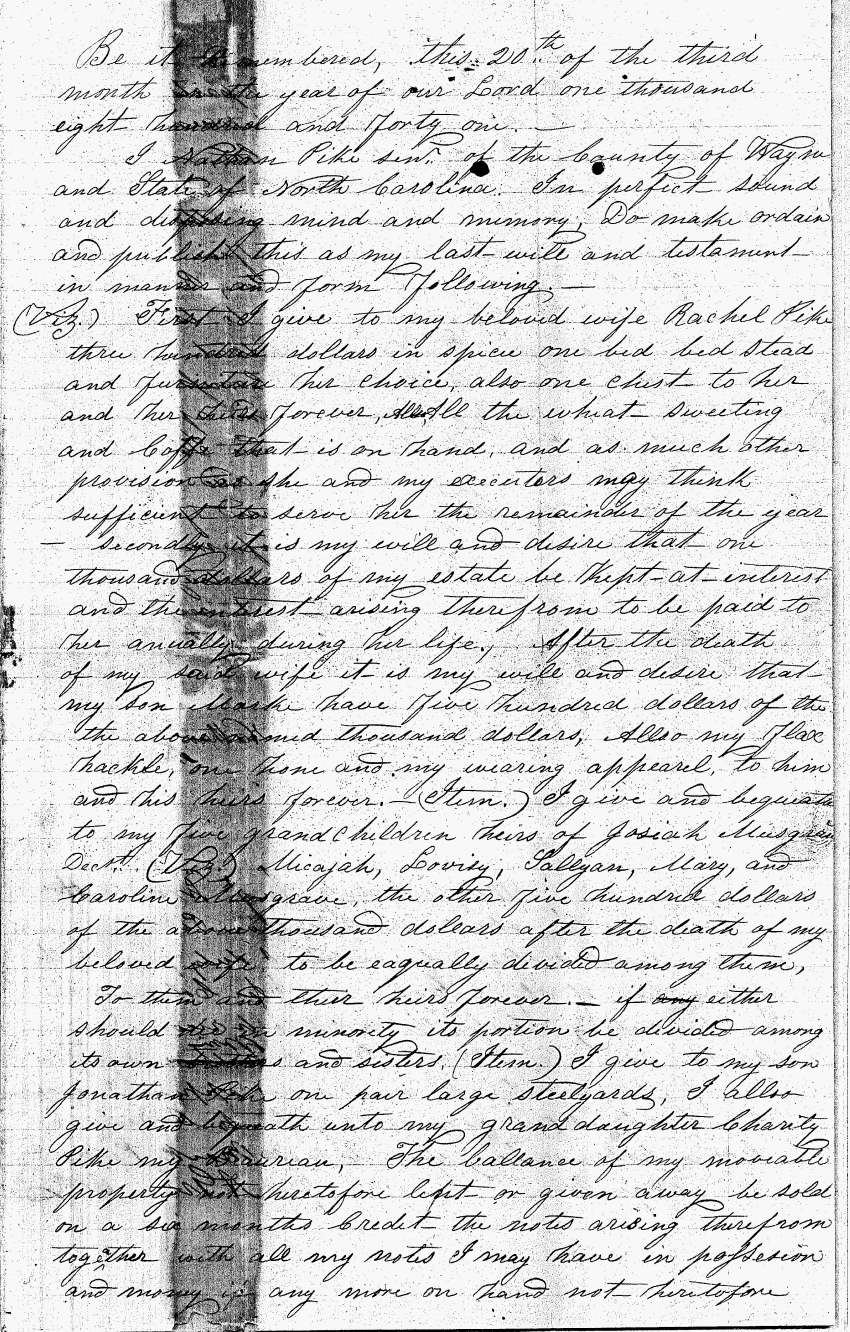 Be it Remembered, this 20th of the third
month in the year of our Lord one thousand
eight hundred and forty one. —
I Nathan Pike senr. of the County of Wayne
and State of North Carolina. In perfect sound
and disposing mind and memory, Do make ordain
and publish this as my last will and testament
in manner and form following. —
(Viz.) First I give to my beloved wife Rachel Pike
three hundred dollars in specie one bed bed stead
and furnature her choice, also one chest to her
and her heirs forever, Also All the wheat sweeting
and Coffe that is on hand, and as much other
provision as she and my executors may think
sufficient to serve her the remainder of the year
— secondly it is my will and desire that one
thousand dollars of my estate be kept at interest
and the interest arising therefrom to be paid to
her anually during her life, After the death
of my said wife it is my will and desire that
my son Marke have five hundred dollars of the
the above named thousand dollars, Allso my Flax
hackle, one hone and my wearing appearel, to him
and his heirs forever. — (Item.) I give and bequeath
to my five grandchildren heirs of Josiah Musgrave
Decst. (Viz.) Micajah, Lovisy, Sallyan, Mary, and
Caroline Musgrave, the other five hundred dollars
of the above thousand dollars after the death of my
beloved wife to be eaqually divided among them,
To them and their heirs forever. — if any either
should die in minority its portion be divided among
its own brothers and sisters. (Item.) I give to my son
Jonathan Pike one pair large steelyards, I allso
give and bequeath unto my granddaughter Charity
Pike my Beaureau, The ballance of my moveable
property not heretofore left or given away be sold
on a six months Credit the notes arising therefrom
together with all my notes I may have in possesion
and money if any more on hand not heretofore